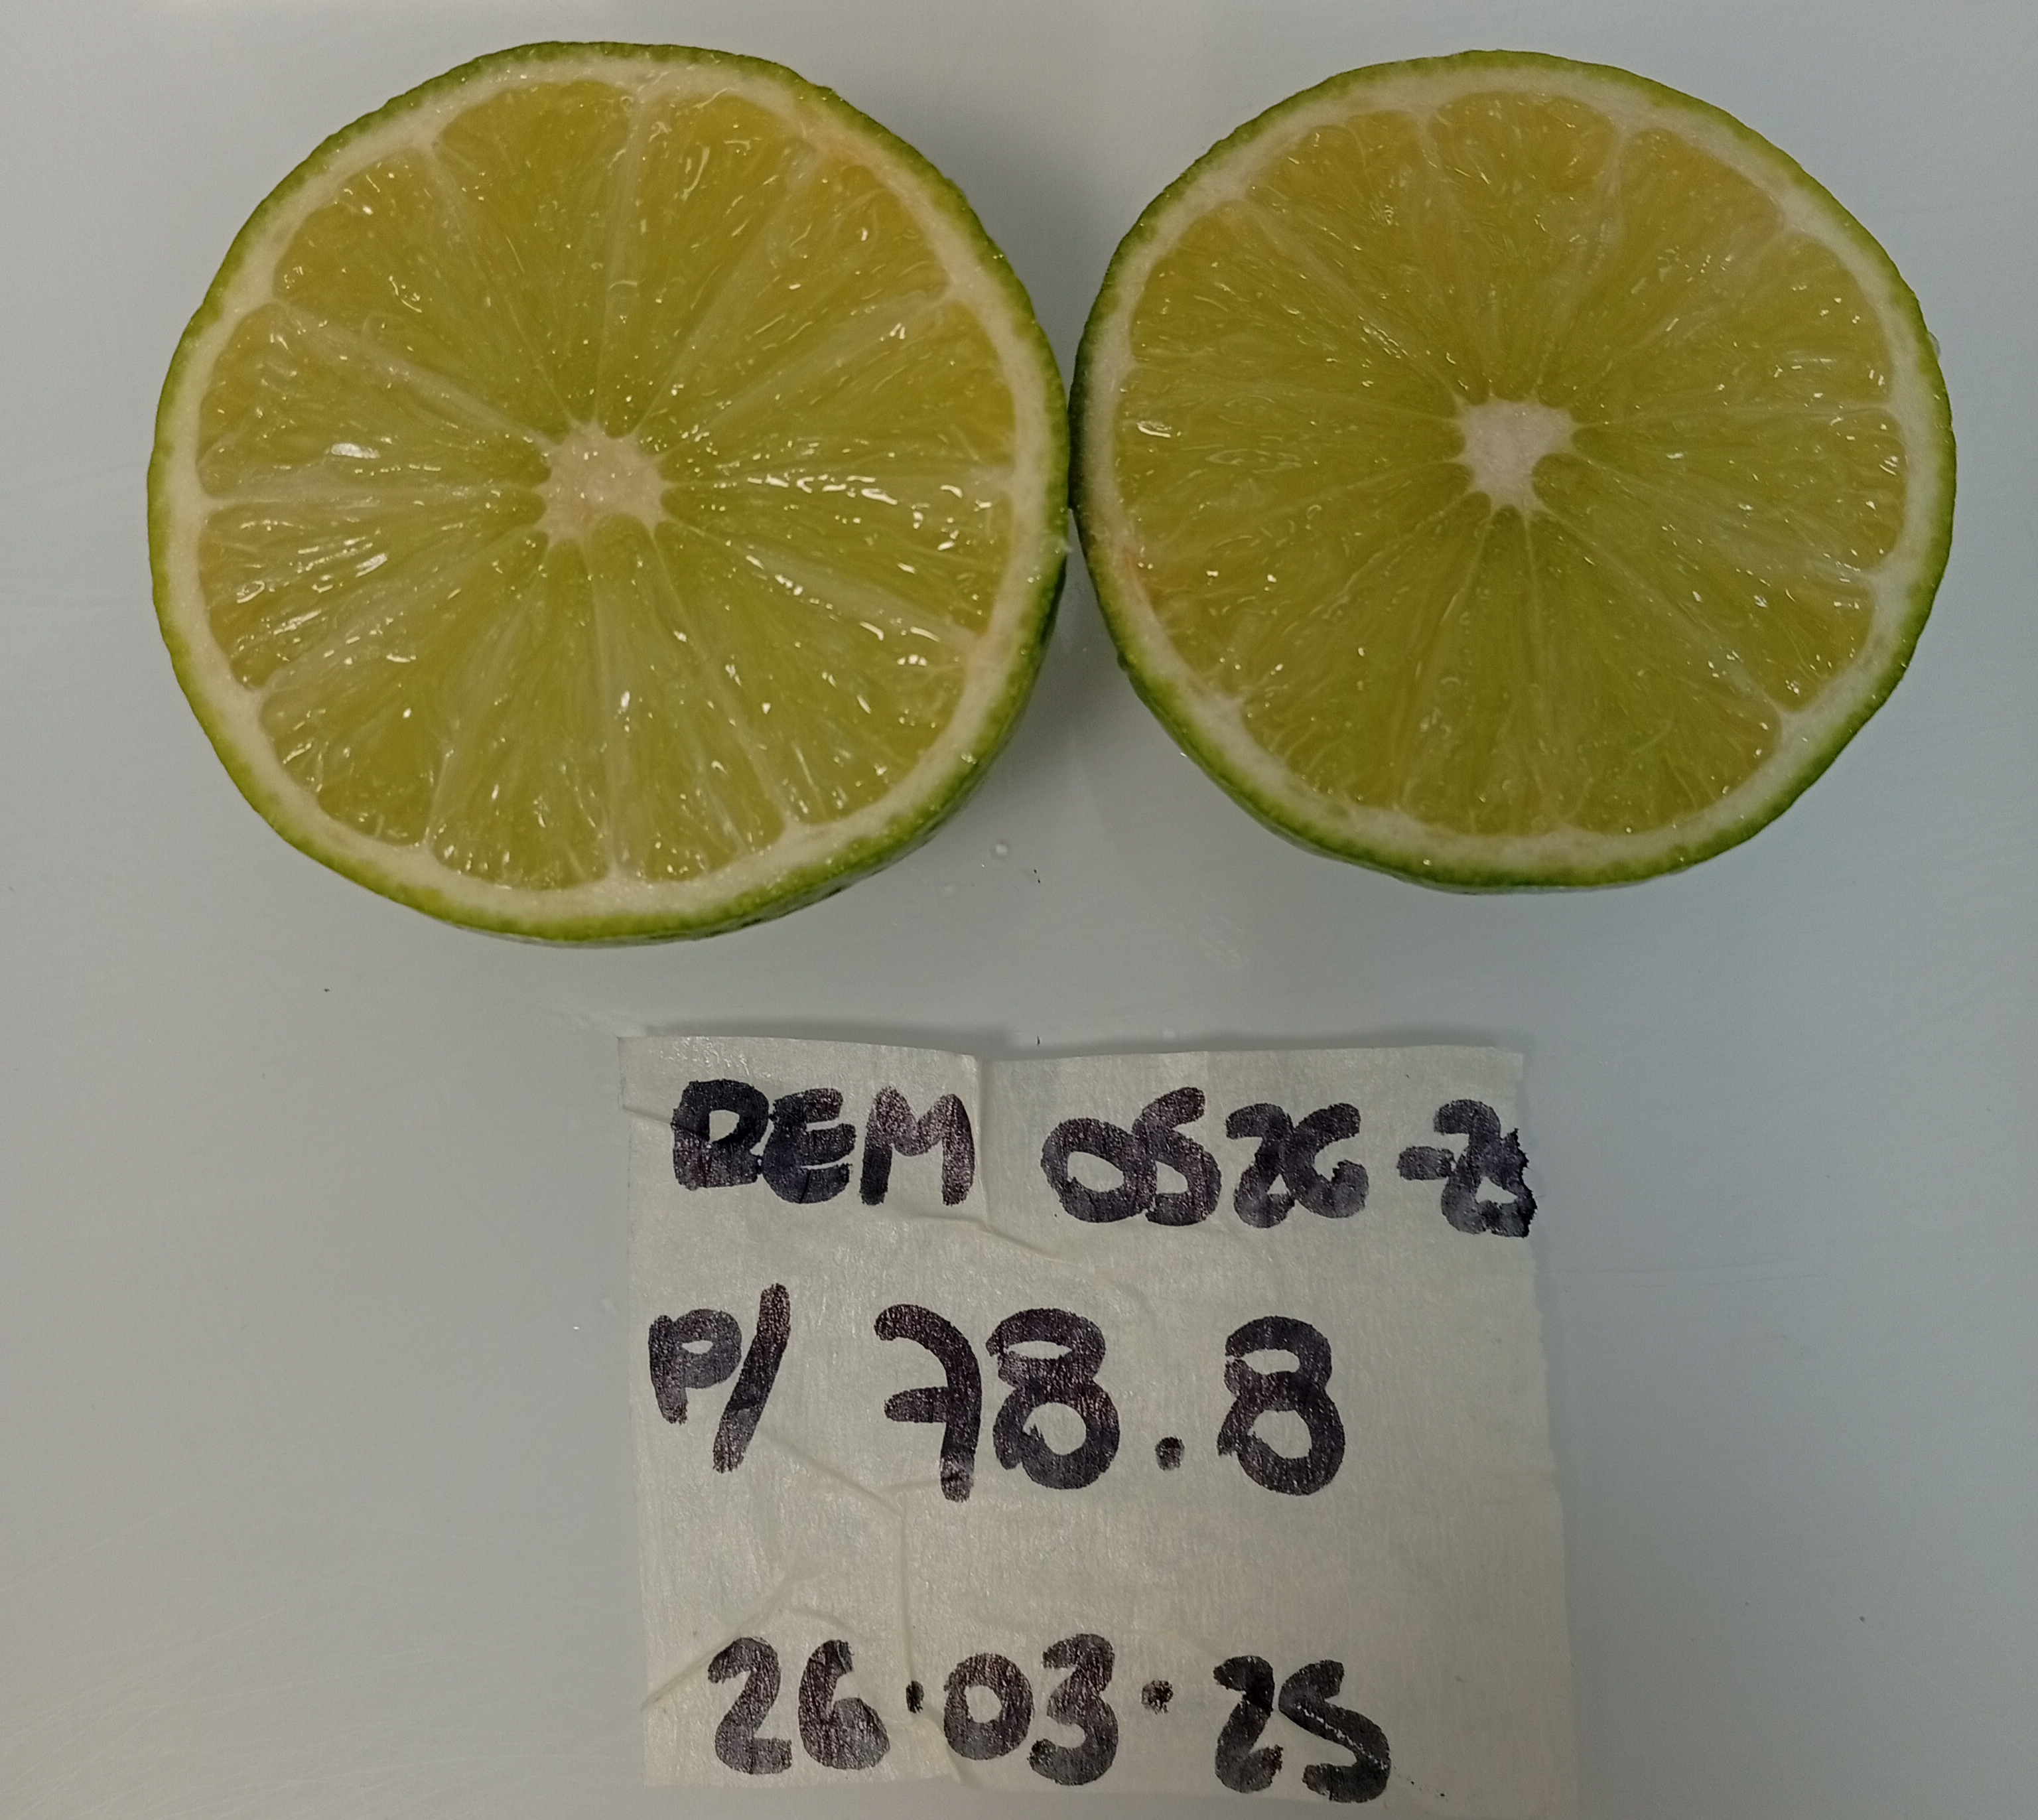 REM 0526-25
P/ 78.8
26.03.25